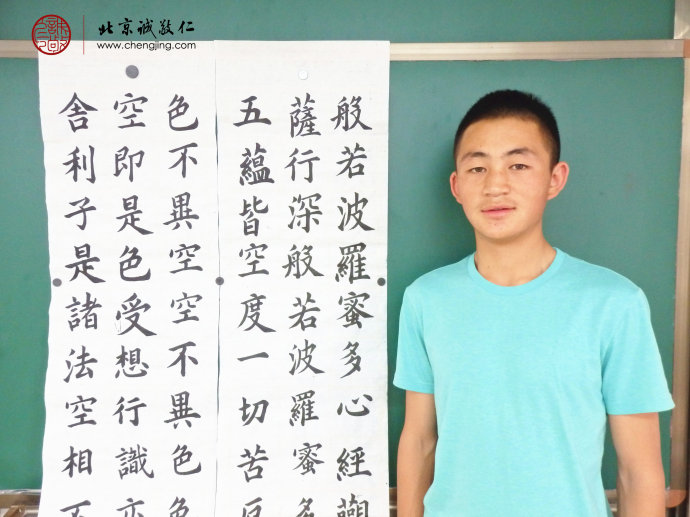 北京誠敬仁
www.chengjing.com
般若波羅蜜多心經觀
薩行深般若波羅蜜多
五蘊皆空度一切苦厄
色不異空空不異色色
空即是色受想行識亦
舍利子是諸法空相不